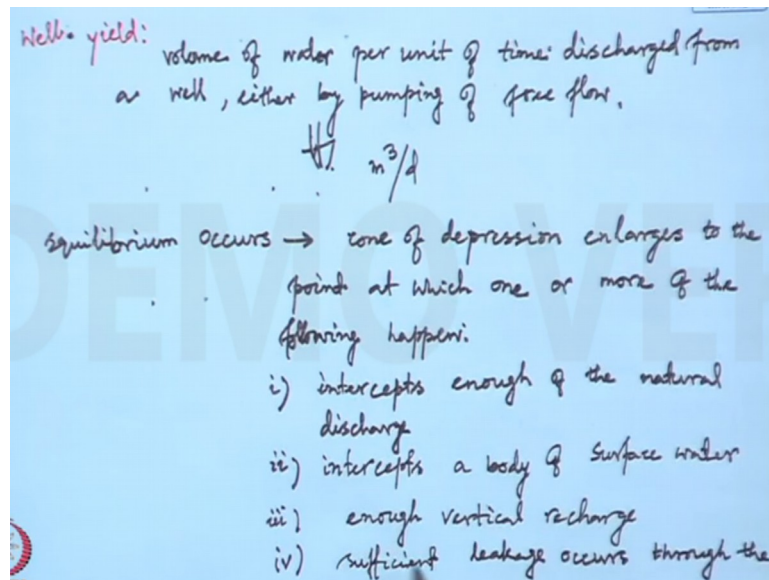 Well yield:
volume of water per unit of time discharged from
a well, either by pumping of free flow.
m³/d
equilibrium occurs → cone of depression enlarges to the
point at which one or more of the
following happen:
i) intercepts enough of the natural
discharge
ii) intercepts a body of surface water
iii) enough vertical recharge
iv) sufficient leakage occurs through the
DEMO VER